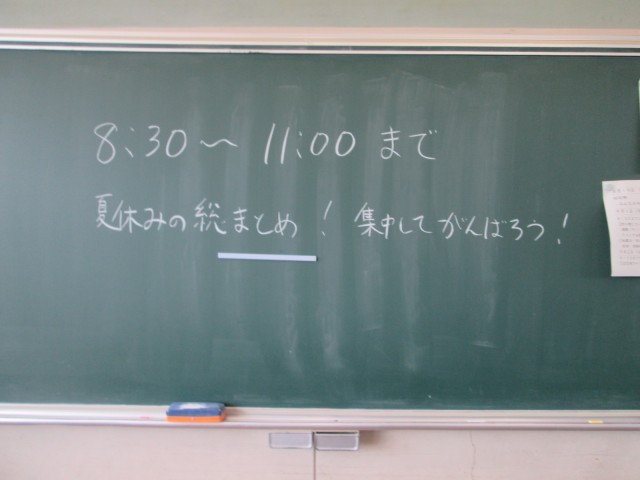 8:30～11:00まで
夏休みの総まとめ！集中してがんばろう！